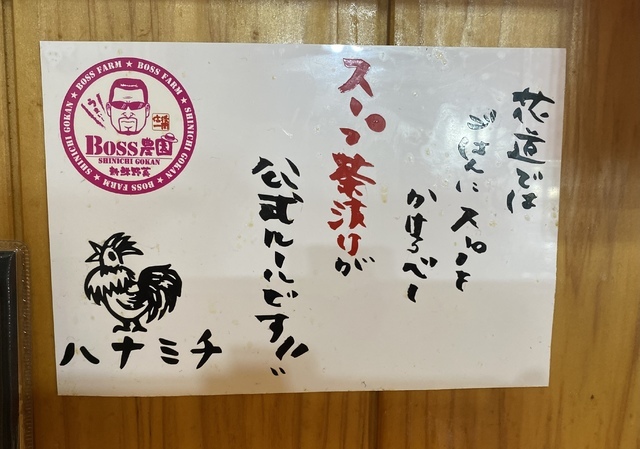 花道では
ごはんにスープを
かけるべし
スープ茶漬けが
公式ルールです!!
★ BOSS FARM ★ BOSS FARM ★ SHINICHI GOKAN ★ BOSS FARM ★ SHINICHI GOKAN
Boss農園
SHINICHI GOKAN
新鮮野菜
ハナミチ